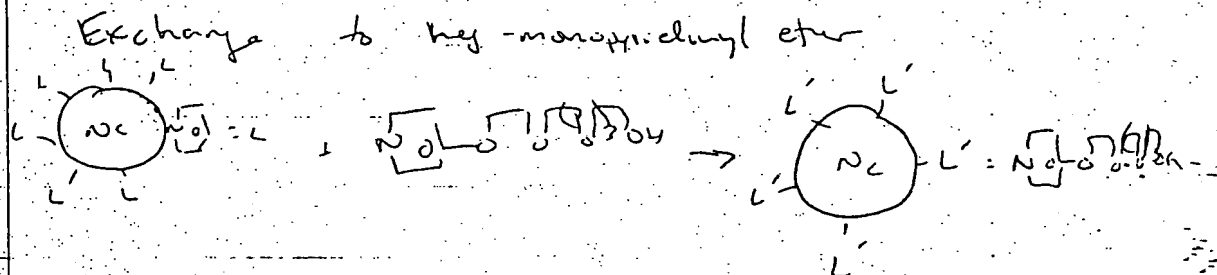 Exchange to heg-monopyridinyl ether
L L L
L NC N O = L , N O O O O 3 OH → L' L' NC L' = N O O O O 3 OH
L' L L'
L'